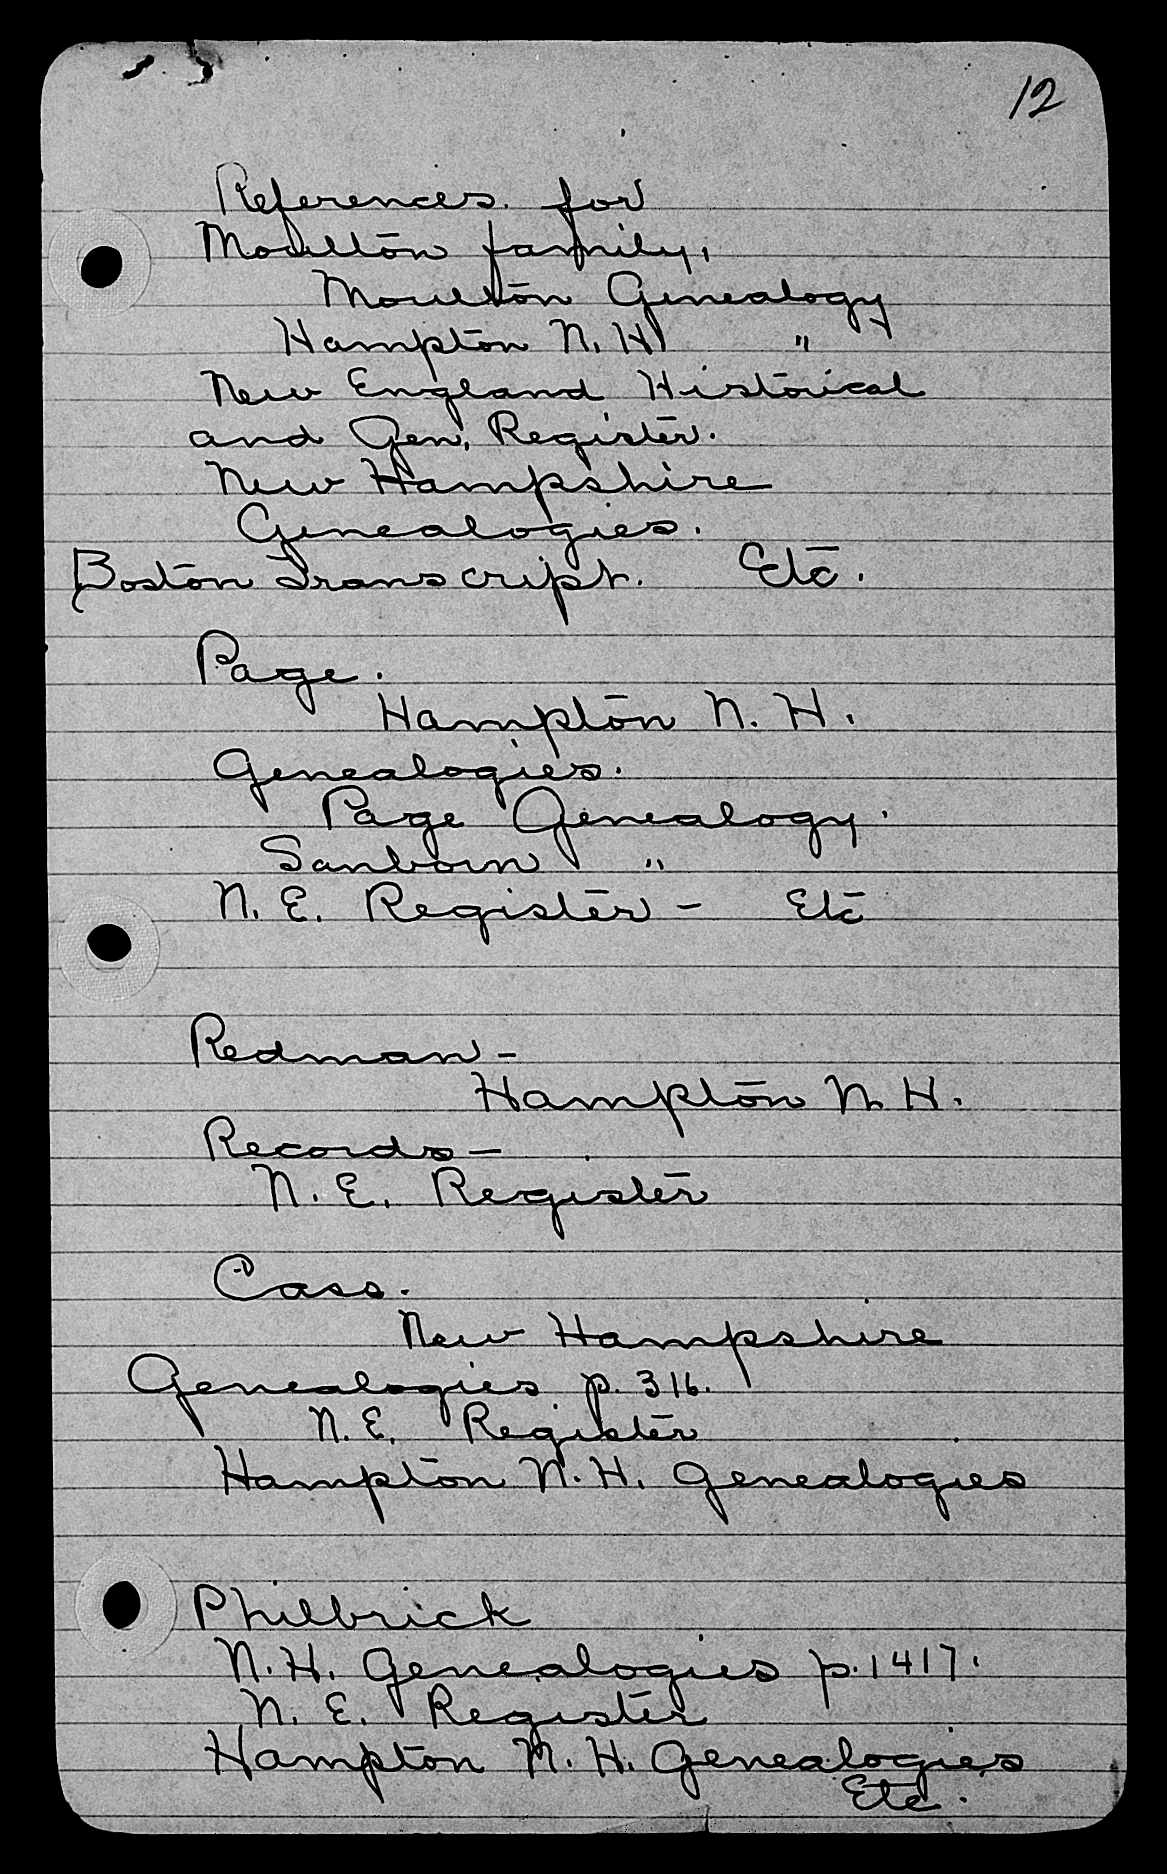 12
References. for
Moulton family,
Moulton Genealogy
Hampton N. H. "
New England Historical
and Gen, Register.
New Hampshire
Genealogies.
Boston Transcript. Etc.
Page.
Hampton N. H.
Genealogies.
Page Genealogy.
Sanborn "
N. E. Register - Etc
Redman -
Hampton N. H.
Records -
N. E. Register
Cass.
New Hampshire
Genealogies p. 316.
N. E. Register
Hampton N. H. Genealogies
Philbrick
N. H. Genealogies p. 1417.
N. E. Register
Hampton N. H. Genealogies
Etc.